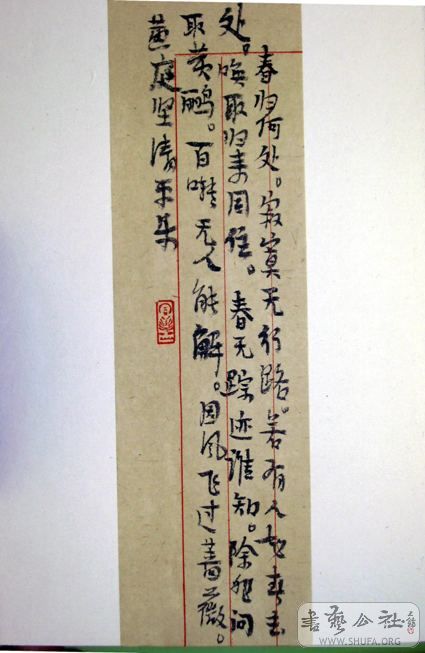 春归何处。寂寞无行路。若有人知春去
处。唤取归来同住。春无踪迹谁知。除非问
取黄鹂。百啭无人能解。因风飞过蔷薇。
黄庭坚清平乐
書藝公社
WWW.SHUFA.ORG